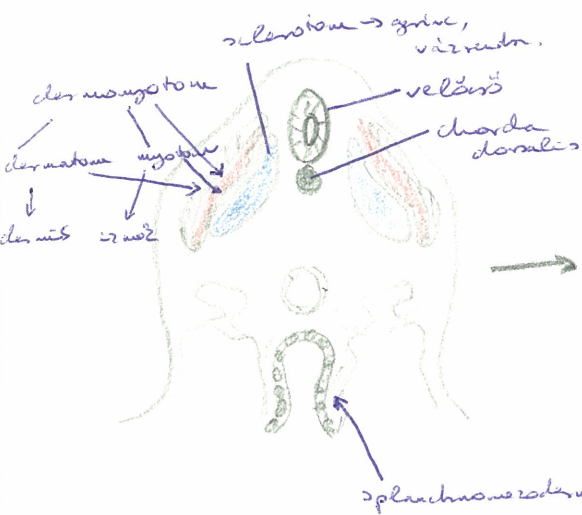 sclerotom → gerinc,
vázrendsz.
dermomyotom
velőcső
chorda
dorsalis
dermatom myotom
dermis izmok
splanchnomezoderm